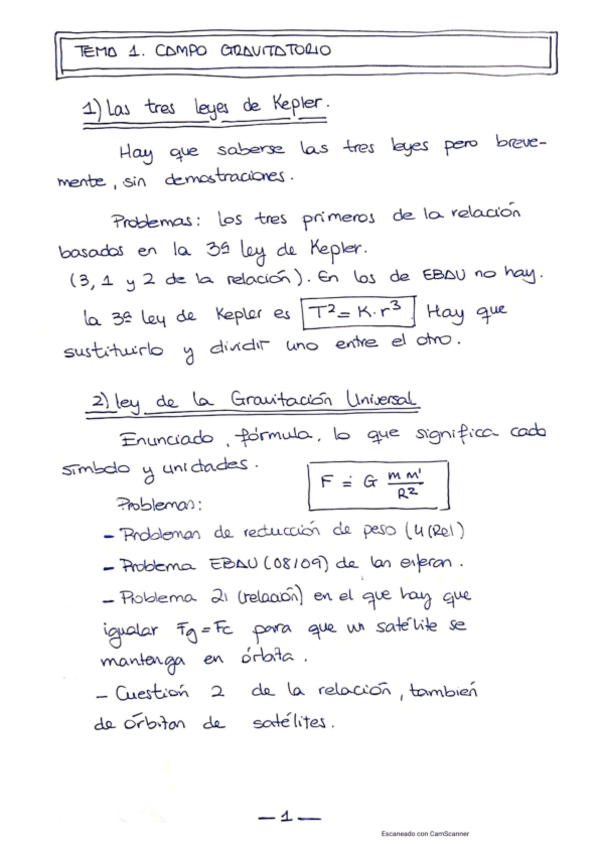 TEMA 1. CAMPO GRAVITATORIO
1) Las tres leyes de Kepler.
Hay que saberse las tres leyes pero breve-
mente, sin demostraciones.
Problemas: los tres primeros de la relación
basados en la 3ª ley de Kepler.
(3, 1 y 2 de la relación). En los de EBAU no hay.
La 3ª ley de Kepler es T² = K·r³ Hay que
sustituirlo y dividir uno entre el otro.
2) Ley de la Gravitación Universal
Enunciado, fórmula, lo que significa cada
símbolo y unidades.
F = G m m' / R²
Problemas:
- Problemas de reducción de peso (4 (Rel)
- Problema EBAU (08/09) de las esferas.
- Problema 21 (relación) en el que hay que
igualar Fg = Fc para que un satélite se
mantenga en órbita.
- Cuestión 2 de la relación, también
de órbitas de satélites.
- 1 -
Escaneado con CamScanner